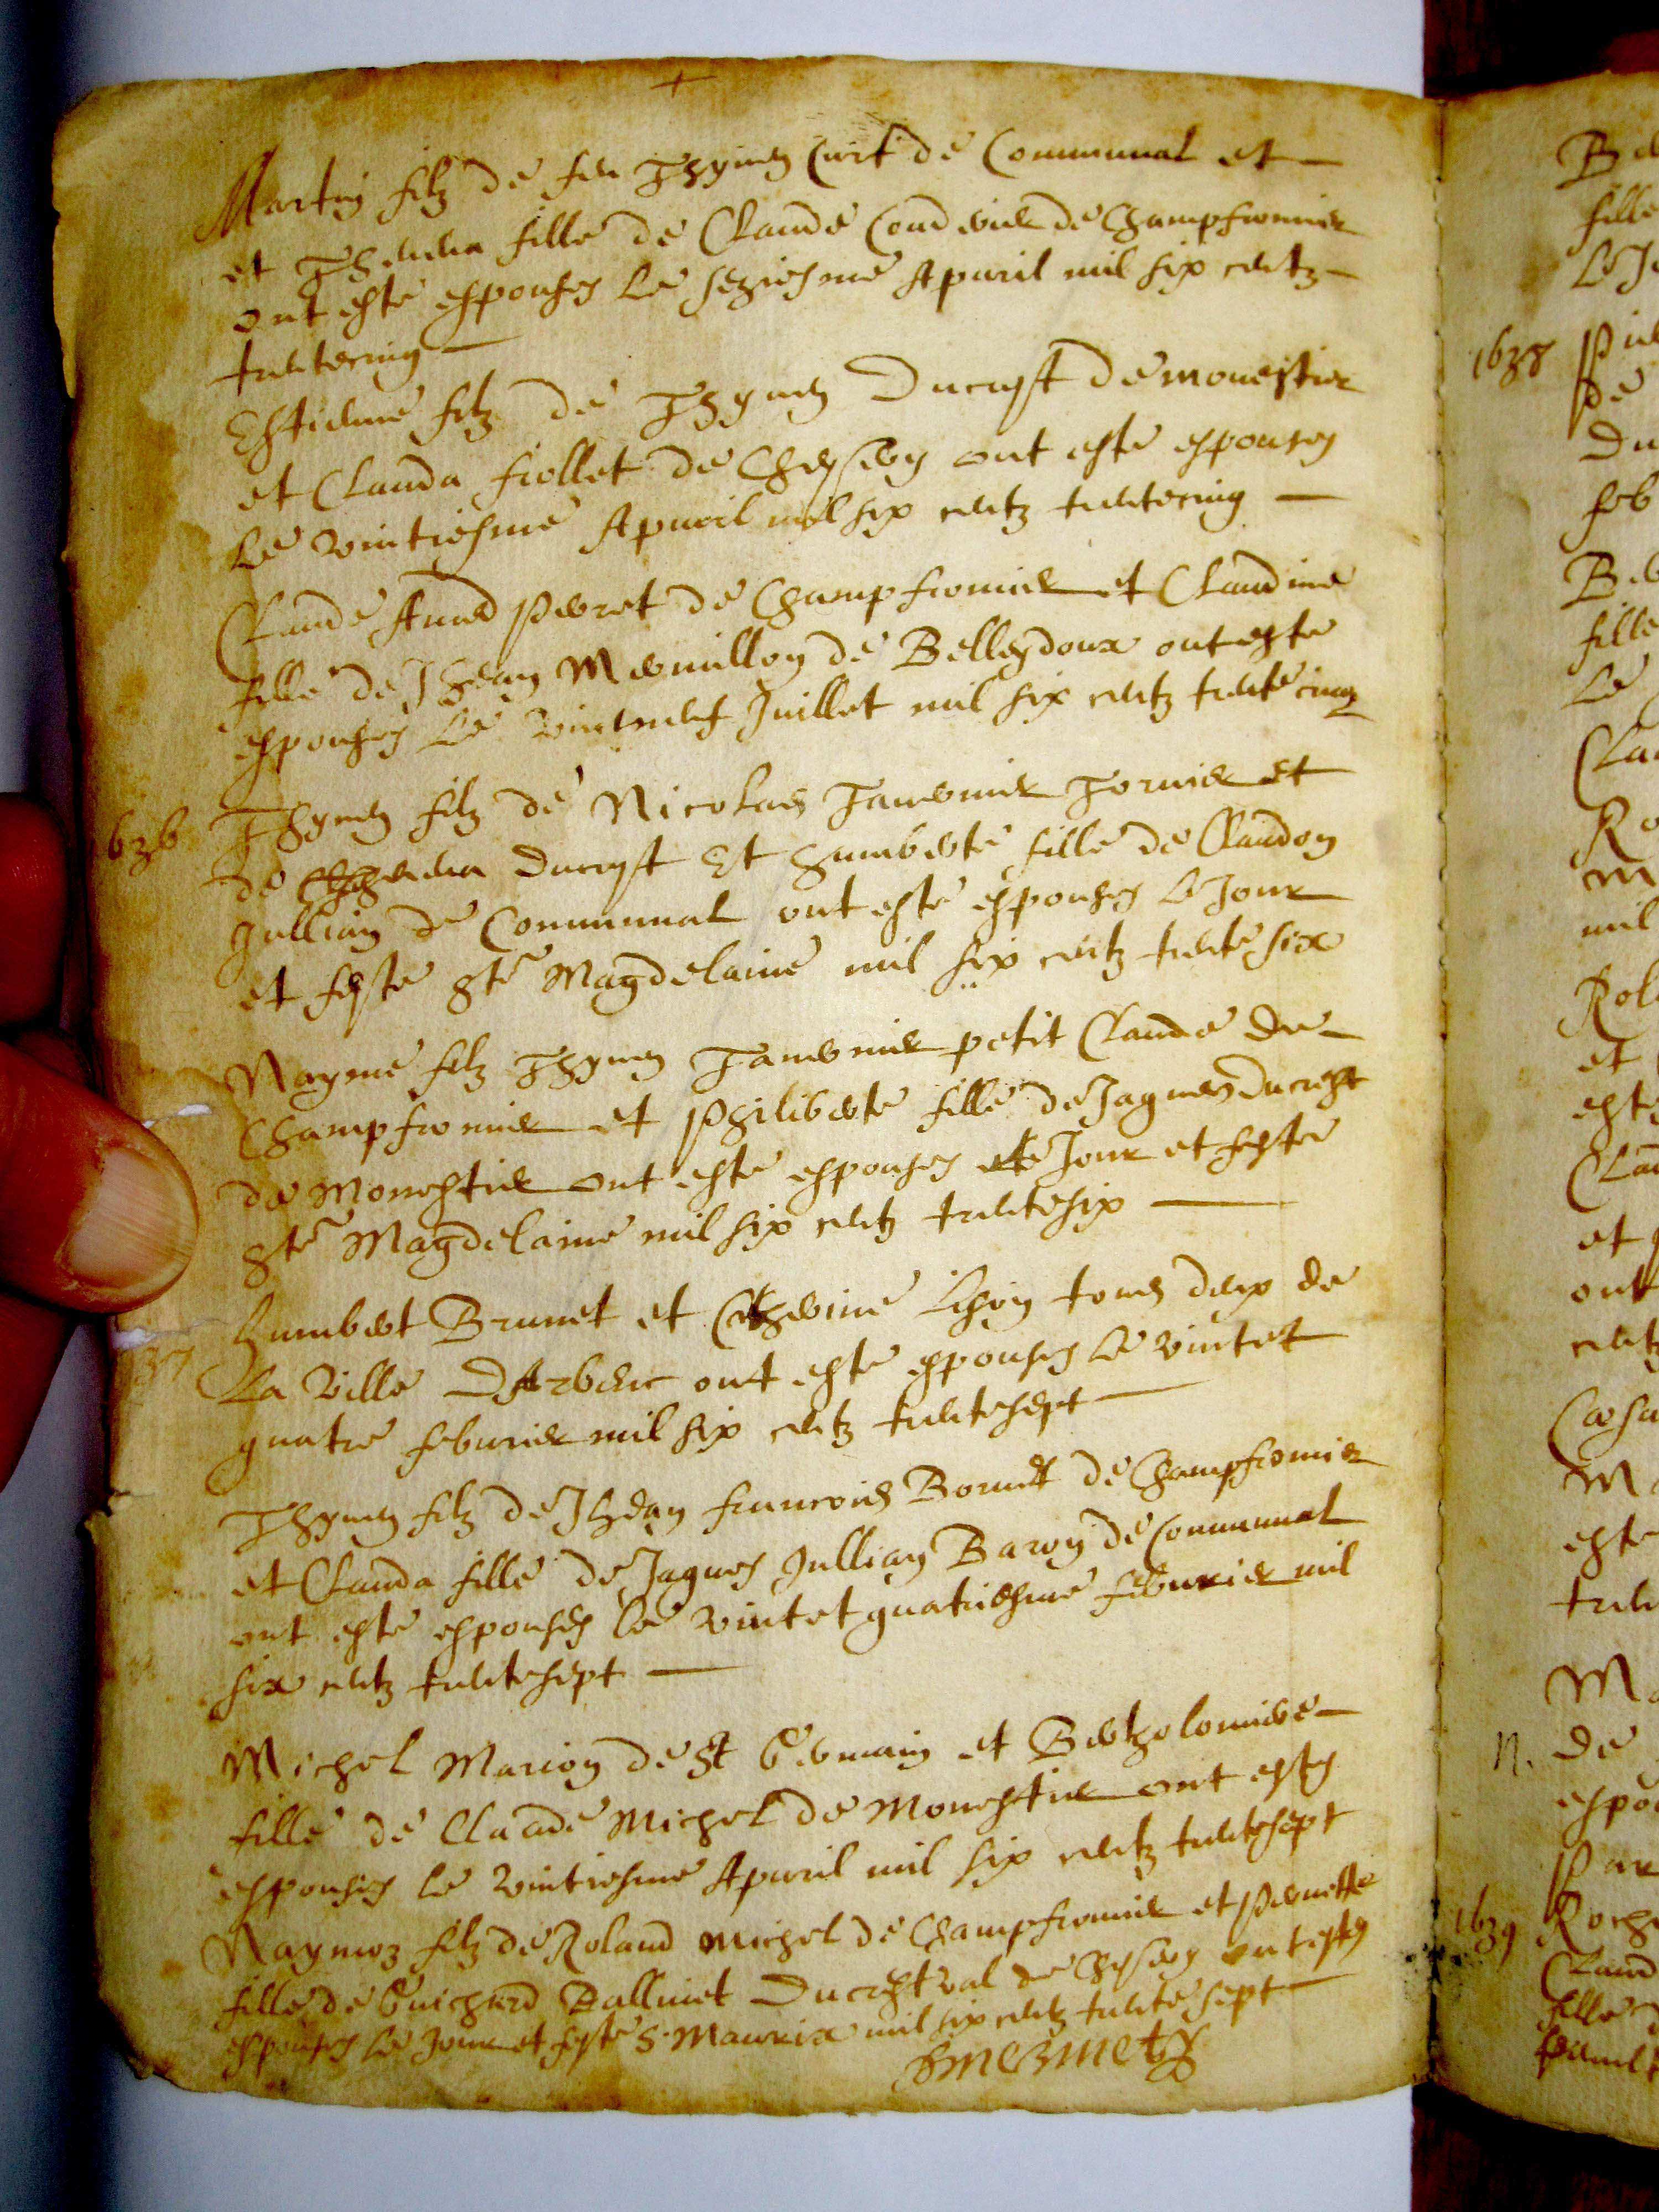 Martin filz de feu Thyven Curt de Communal et
et Thevena fille de Claude Coudurier de Champfromier
ont esté espousés le seziesme Apuril mil six centz
trentecinq
Estienne filz de Thyven Ducrest de monestier
et Clauda fiollet de Chesery ont esté espousés
le vintiesme Apuril mil six centz trentecinq
Claude Amed perret de Champfromier et Claudine
fille de Jhean Mermillon de Belleydoux ont esté
espousés le vintneuf Juillet mil six centz trente cinq
1636
Thyven filz de Nicolas Tavernier Tornier et
de Thevena Ducrest Et humberte fille de Claudon
Jullian de Communal ont esté espousés le Jour
et feste ste Magdelaine mil six centz trente six
Nayme filz Thyven Tavernier petit Claude de
Champfromier et philiberte fille de Jaques Ducrest
de Monestier ont esté espousés le Jour et feste
ste Magdelaine mil six centz trentesix
37
humbert Brunet et Catherine tous deux de
La ville D'Arbenc ont esté espousés le vintet
quatre feburier mil six centz trentesept
Thyven filz de Jhean francois Bornet de Champfromier
et Clauda fille de Jaques Jullian Baron de Communal
ont esté espousés le vintetquatriesme feburier mil
six centz trentesept
Michel Marion de st Germain et Bertholomive
fille de Claude Michel de Monestier ont estés
espousés le vintiesme Apuril mil six centz trentesept
Naymoz filz de Roland Michel de Champfromier et pernette
fille de Guichard Ballivet Ducrest val de Chesery ont estés
espousés le Jour et feste S. Maurix mil six centz trente sept
Mermetz
fille
1638
de
Du
feb
fille
Le
mil
et
este
et
ont
centz
este
N. de
1639
fille